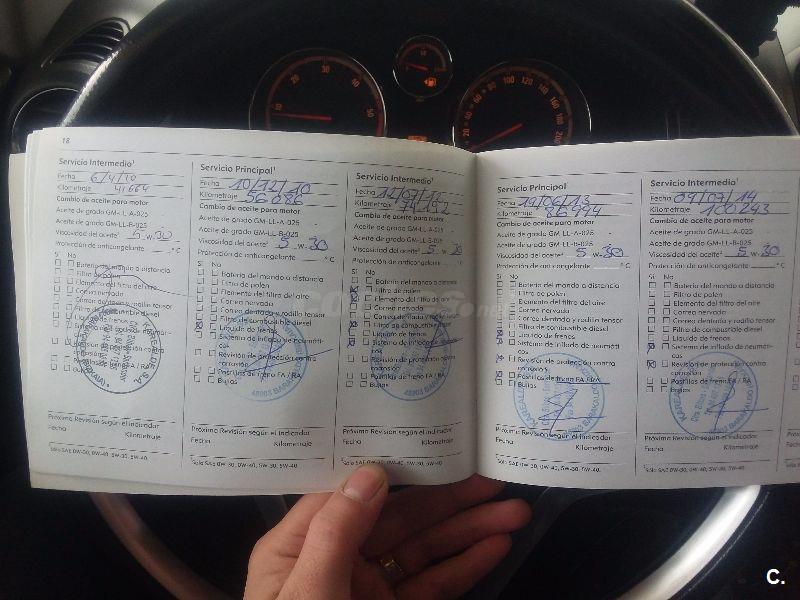 18
Servicio Intermedio¹
Fecha 6/4/10
Kilometraje 41664
Cambio de aceite para motor
Aceite de grado GM-LL-A-025
Aceite de grado GM-LL-B-025
Viscosidad del aceite² 5 W 30
Protección de anticongelante °C
Sí No
Batería del mando a distancia
Filtro de polen
Elemento del filtro del aire
Correa nervada
Filtro de combustible diesel
Líquido de frenos
Pastillas de freno FA / RA
Bujías
Próxima Revisión según el indicador
Fecha Kilometraje
² Sólo SAE 0W-30, 0W-40, 5W-30, 5W-40.
Servicio Principal¹
Fecha 10/12/10
Kilometraje 56086
Cambio de aceite para motor
Aceite de grado GM-LL-A-025
Aceite de grado GM-LL-B-025
Viscosidad del aceite² 5 W-30
Protección de anticongelante °C
Sí No
Batería del mando a distancia
Filtro de polen
Elemento del filtro del aire
Correa nervada
Correa dentada y rodillo tensor
Filtro de combustible diesel
Líquido de frenos
Sistema de inflado de neumáti-
cos
Revisión de protección contra
corrosión
Pastillas de freno FA / RA
Bujías
48903 BARAKALDO
Próxima Revisión según el indicador
Fecha Kilometraje
² Sólo SAE 0W-30, 0W-40, 5W-30, 5W-40.
Servicio Intermedio¹
Fecha 12/07/
Kilometraje
Cambio de aceite para motor
Aceite de grado GM-LL-A-025
Aceite de grado GM-LL-B-025
Viscosidad del aceite² 5 W 30
Protección de anticongelante °C
Sí No
Batería del mando a distancia
Filtro de polen
Elemento del filtro de aire
Correa nervada
Filtro de combustible diesel
Líquido de frenos
Sistema de inflado de neumáti-
cos
Revisión de protección contra
corrosión
Pastillas de freno FA / RA
Bujías
48903 BARAKALDO
Próxima Revisión según el indicador
Fecha Kilometraje
² Sólo SAE 0W-30, 0W-40, 5W-30, 5W-40.
Servicio Principal¹
Fecha 19/06/13
Kilometraje
Cambio de aceite para motor
Aceite de grado GM-LL-A-025
Aceite de grado GM-LL-B-025
Viscosidad del aceite² 5 W-30
Protección de anticongelante °C
Sí No
Batería del mando a distancia
Filtro de polen
Elemento del filtro del aire
Correa nervada
Correa dentada y rodillo tensor
Filtro de combustible diesel
Líquido de frenos
Sistema de inflado de neumáti-
cos
Revisión de protección contra
corrosión
Pastillas de freno FA / RA
Bujías
Próxima Revisión según el indicador
Fecha Kilometraje
² Sólo SAE 0W-30, 0W-40, 5W-30, 5W-40.
Servicio Intermedio¹
Fecha 09/07/14
Kilometraje 100243
Cambio de aceite para motor
Aceite de grado GM-LL-A-025
Aceite de grado GM-LL-B-025
Viscosidad del aceite² 5 W-30
Protección de anticongelante °C
Sí No
Batería del mando a distancia
Filtro de polen
Elemento del filtro del aire
Correa nervada
Correa dentada y rodillo tensor
Filtro de combustible diesel
Líquido de frenos
Sistema de inflado de neumáti-
cos
Revisión de protección contra
corrosión
Pastillas de freno FA / RA
Bujías
Próxima Revisión según el indicador
Fecha Kilometraje
² Sólo SAE 0W-30, 0W-40, 5W-30, 5W-40.
C.